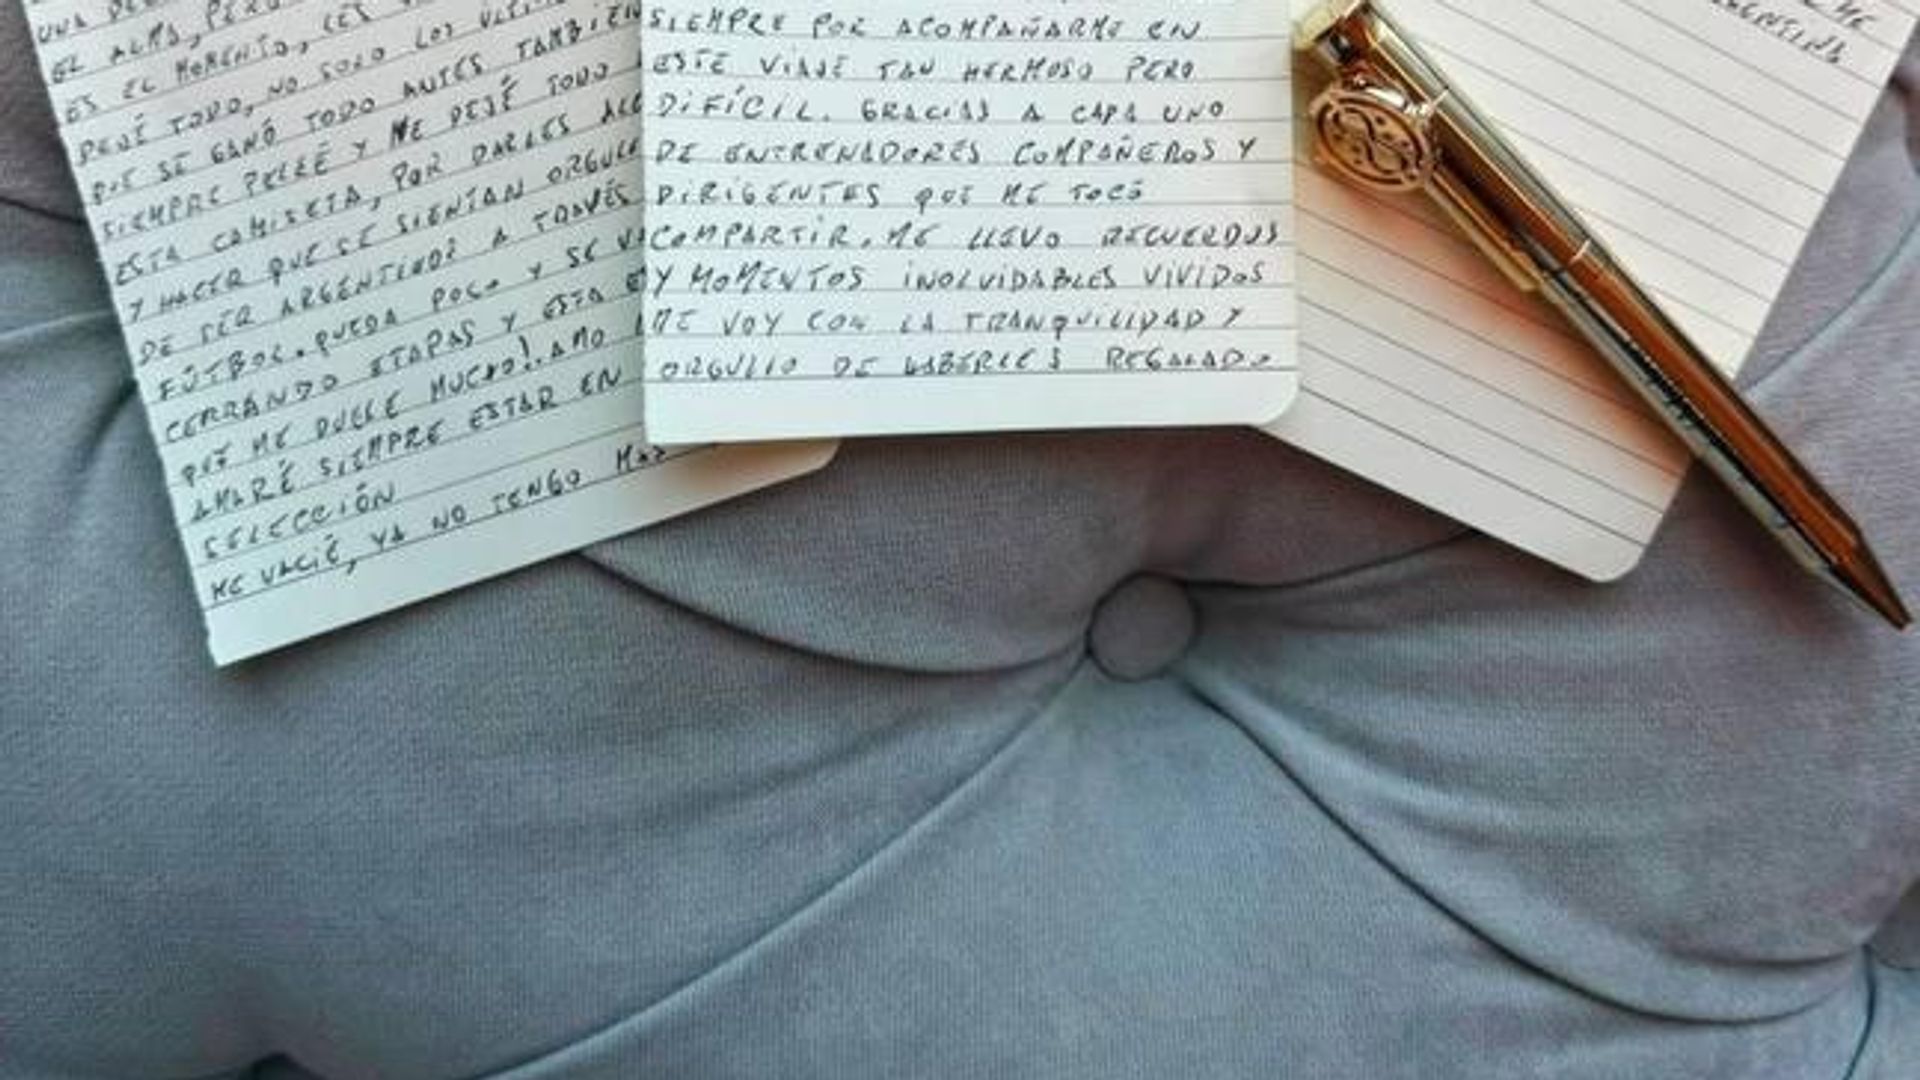 EL ALMA, PERO
ES EL MOMENTO, LES
DEJÉ TODO, NO SOLO LOS
QUE SE GANÓ TODO ANTES TAMBIÉN
SIEMPRE PELEÉ Y ME DEJÉ TODO
ESTA CAMISETA, POR DARLES
Y HACER QUE SE SIENTAN
DE SER ARGENTINOS A TRAVÉS
FÚTBOL. QUEDA POCO Y SE
CERRANDO ETAPAS Y ESTA
QUE ME DUELE MUCHO!. AMO
AMARÉ SIEMPRE ESTAR EN
SELECCIÓN
ME VACIÉ, YA NO TENGO MAS
SIEMPRE POR ACOMPAÑARME EN
ESTE VIAJE TAN HERMOSO PERO
DIFÍCIL. GRACIAS A CADA UNO
DE ENTRENADORES COMPAÑEROS Y
DIRIGENTES QUE ME TOCÓ
COMPARTIR. ME LLEVO RECUERDOS
Y MOMENTOS INOLVIDABLES VIVIDOS
ME VOY CON LA TRANQUILIDAD Y
ORGULLO DE HABERLES REGALADO